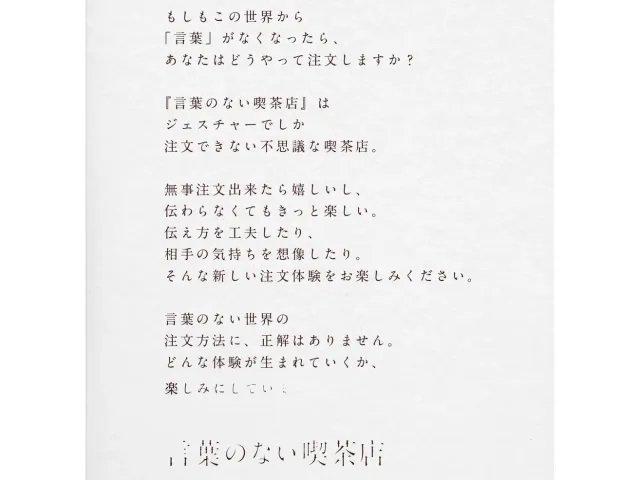 もしもこの世界から
「言葉」がなくなったら、
あなたはどうやって注文しますか？
『言葉のない喫茶店』は
ジェスチャーでしか
注文できない不思議な喫茶店。
無事注文出来たら嬉しいし、
伝わらなくてもきっと楽しい。
伝え方を工夫したり、
相手の気持ちを想像したり。
そんな新しい注文体験をお楽しみください。
言葉のない世界の
注文方法に、正解はありません。
どんな体験が生まれていくか、
楽しみにしてい
言葉のない喫茶店